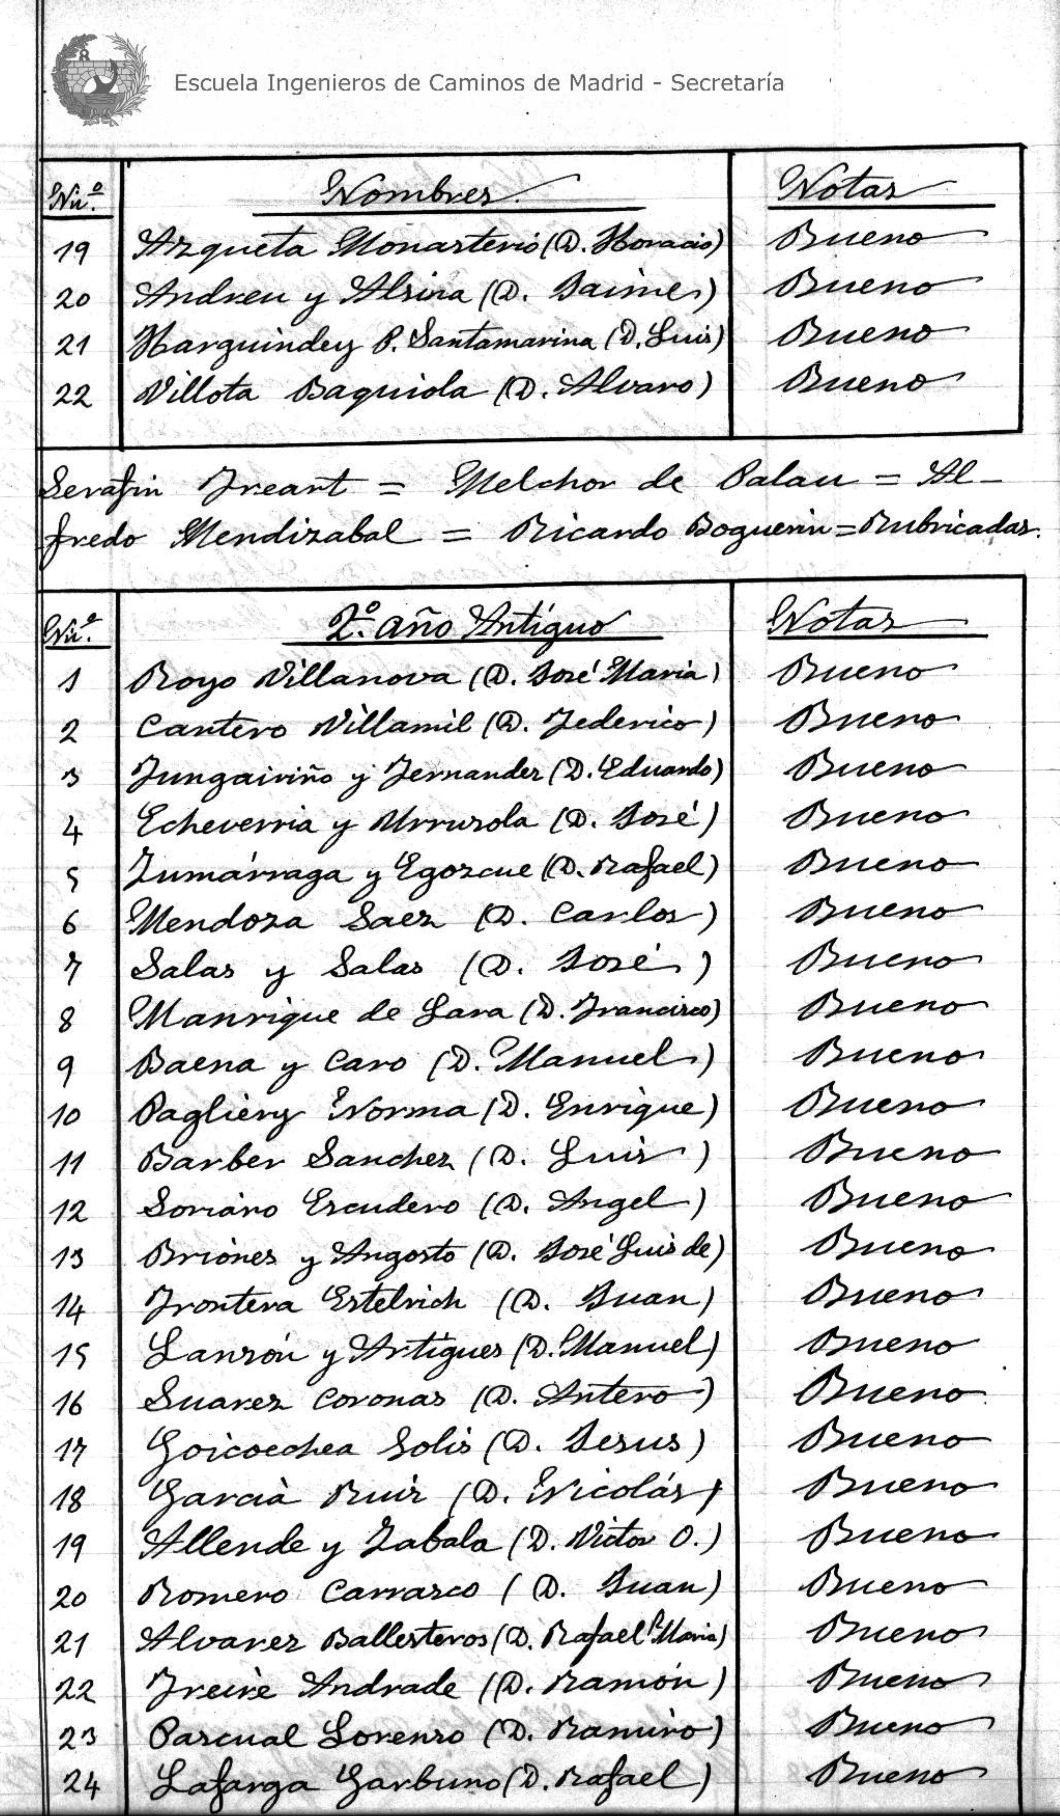 Escuela Ingenieros de Caminos de Madrid - Secretaría
Nú.º Nombres Notas
19 Azqueta Monasterio (D. Horacio) Bueno
20 Andreu y Alsina (D. Jaime) Bueno
21 Harguindey P. Santamarina (D. Luis) Bueno
22 Villota Baquiola (D. Alvaro) Bueno
Serafin Freart = Melchor de Palau = Al-
fredo Mendizabal = Ricardo Boguerin = Rubricadas.
Nú.º 2.º año Antíguo Notas
1 Royo Villanova (D. José Maria) Bueno
2 Cantero Villamil (D. Federico) Bueno
3 Fungairiño y Fernandez (D. Eduardo) Bueno
4 Echeverria y Urruzola (D. José) Bueno
5 Zumárraga y Egozcue (D. Rafael) Bueno
6 Mendoza Saez (D. Carlos) Bueno
7 Salas y Salas (D. José) Bueno
8 Manrique de Lara (D. Francisco) Bueno
9 Baena y Caro (D. Manuel) Bueno
10 Pagliery Norma (D. Enrique) Bueno
11 Barber Sanchez (D. Luis) Bueno
12 Soriano Escudero (D. Angel) Bueno
13 Briones y Angosto (D. José Luis de) Bueno
14 Frontera Estelrich (D. Juan) Bueno
15 Lanzón y Artigues (D. Manuel) Bueno
16 Suarez Coronas (D. Antero) Bueno
17 Goicoechea Solis (D. Jesus) Bueno
18 Garcia Ruiz (D. Nicolás) Bueno
19 Allende y Zabala (D. Victor O.) Bueno
20 Romero Carrasco (D. Juan) Bueno
21 Alvarez Ballesteros (D. Rafael Mª Maria) Bueno
22 Freire Andrade (D. Ramón) Bueno
23 Pascual Lorenzo (D. Ramiro) Bueno
24 Lafarga Garbuno (D. Rafael) Bueno